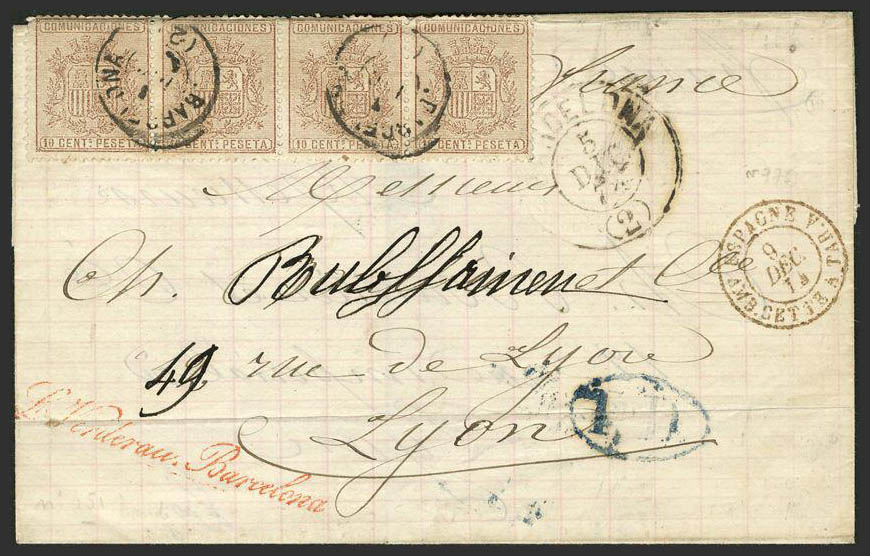 COMUNICACIONES COMUNICACIONES COMUNICACIONES COMUNICACIONES
10 CENT. PESETA 10 CENT. PESETA 10 CENT. PESETA 10 CENT. PESETA
BARCELONA
BARCELONA
France
BARCELONA
5
DIC
74
(2)
Messieurs
ESPAGNE V.
9
DEC.
74
AMB. CETTE A TAR. A
Ch. et Cie
49, rue de Lyon
Lyon
L. Verderau. Barcelona